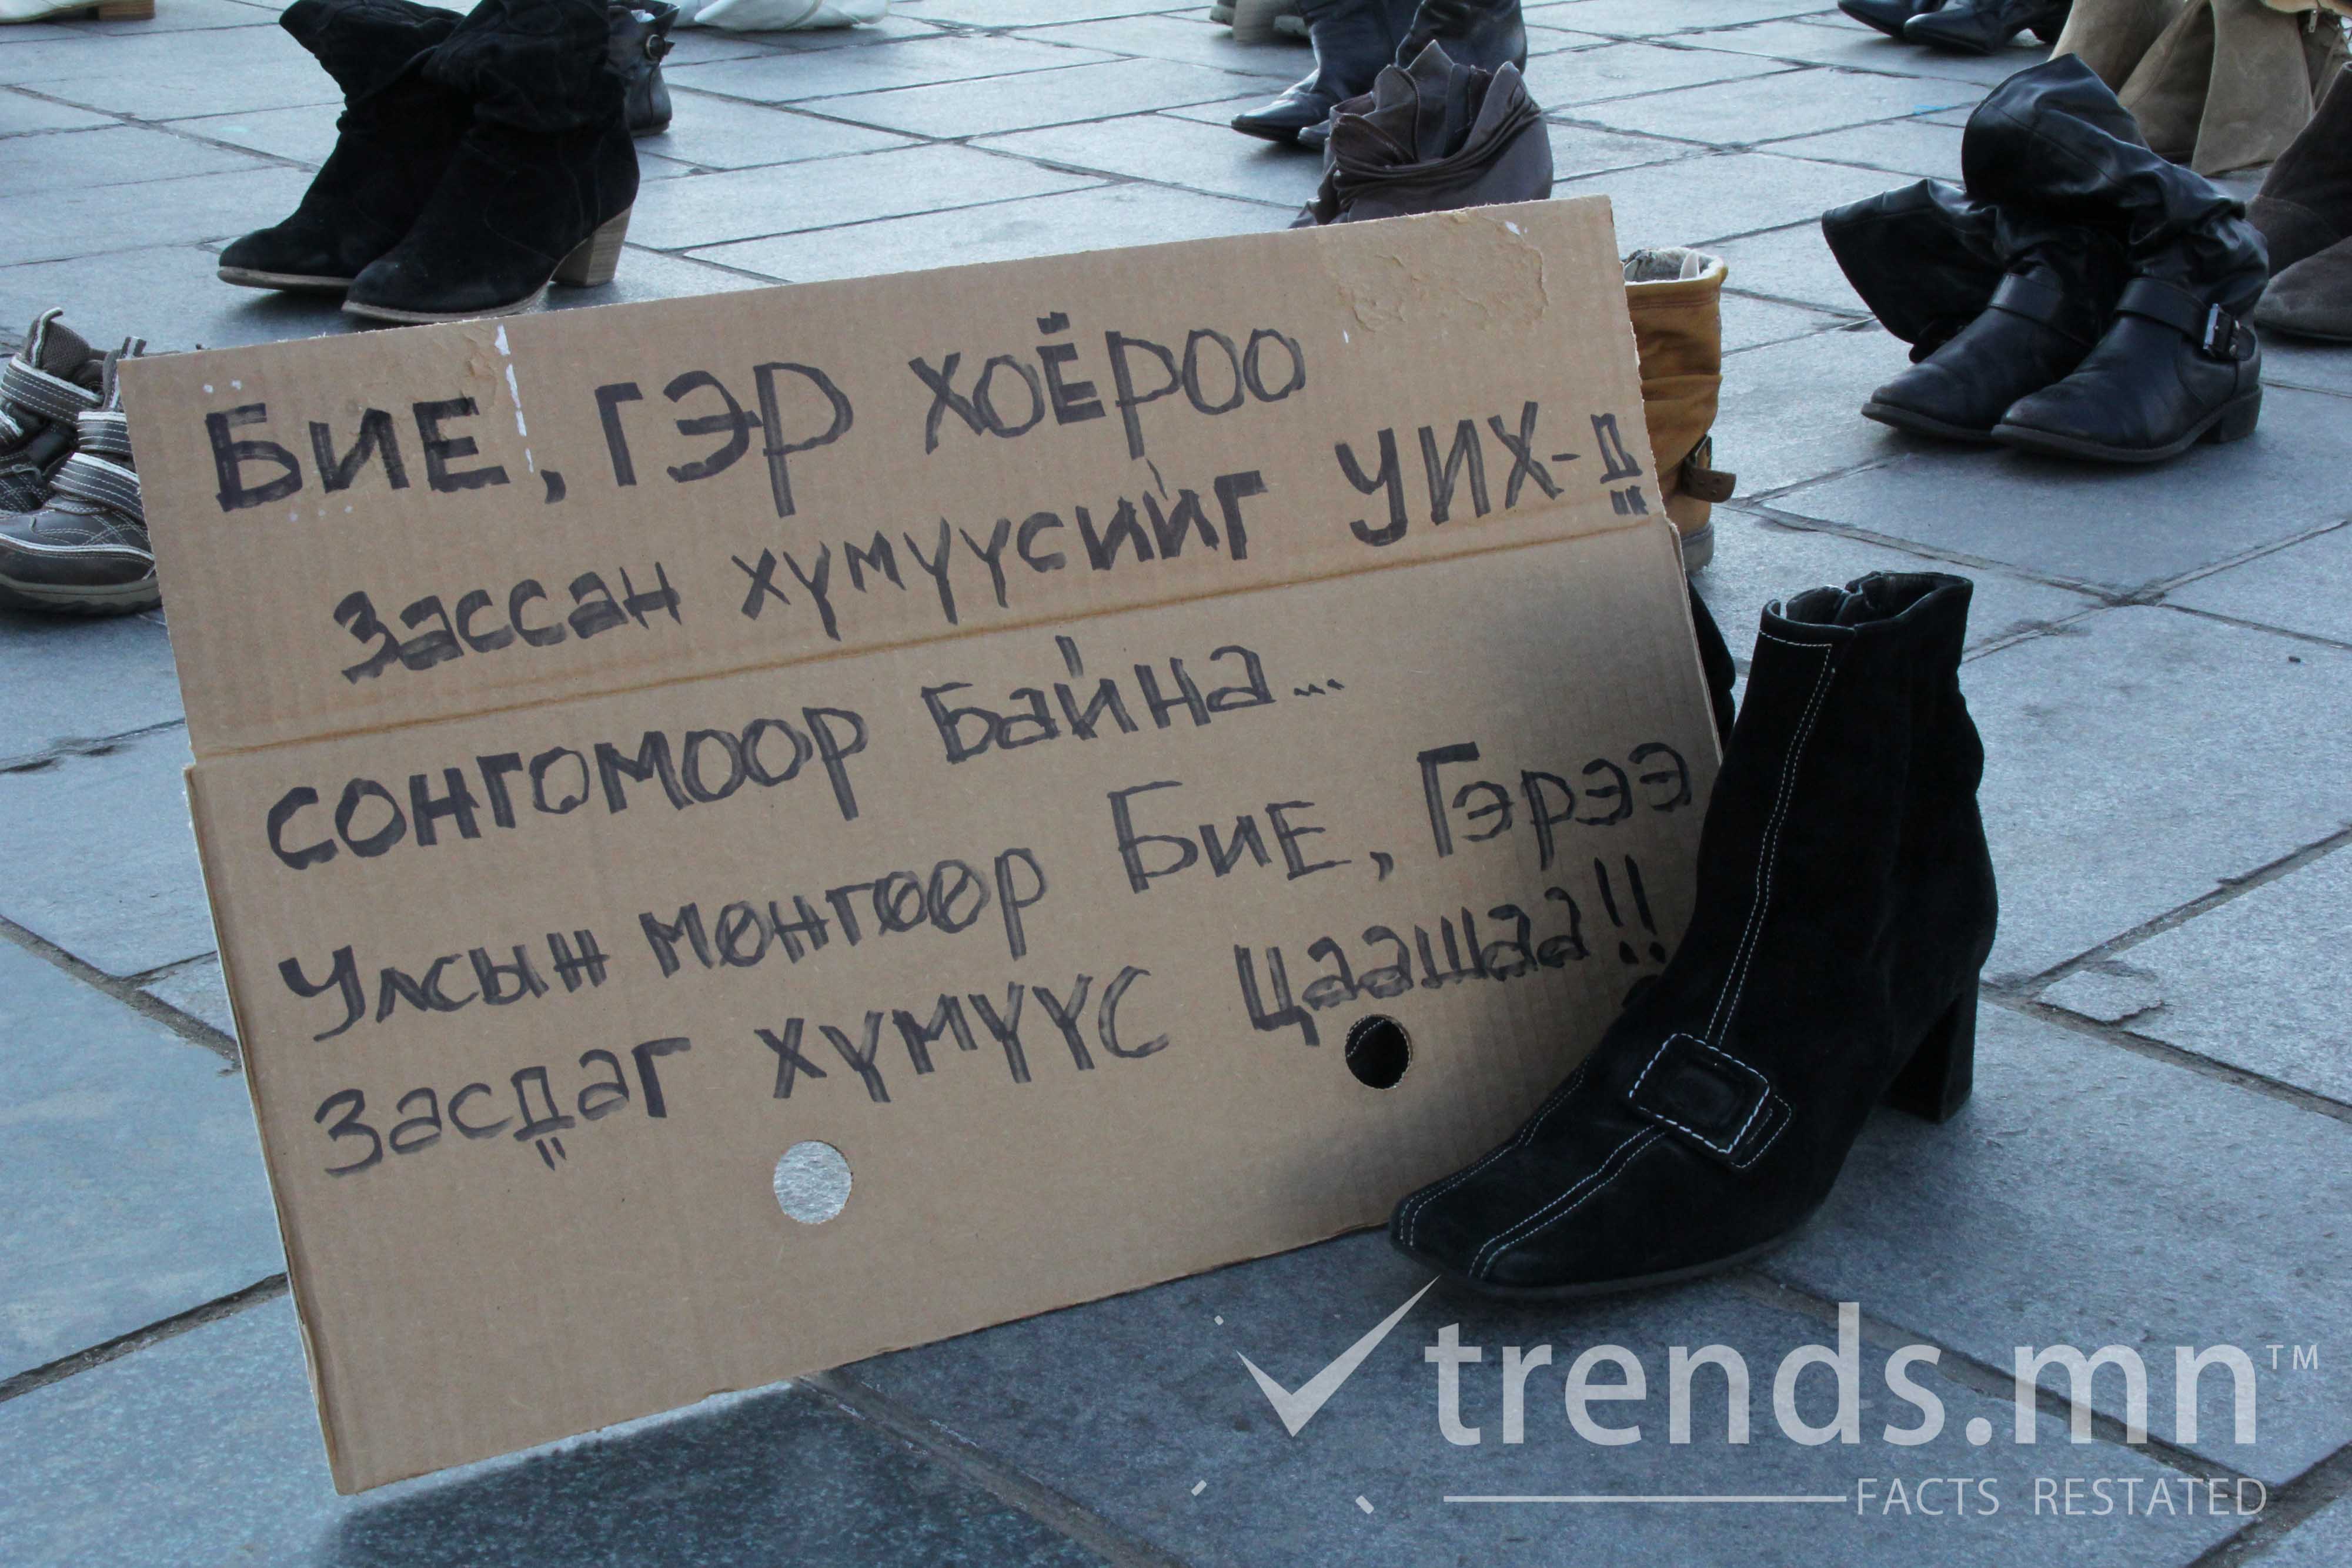 БИЕ, ГЭР ХОЁРОО
Зассан хүмүүсийг УИХ-Д
СОНГОМООР Байна...
Улсын мөнгөөр Бие, Гэрээ
Засдаг хүмүүс Цаашаа!!
trends.mn™
FACTS RESTATED